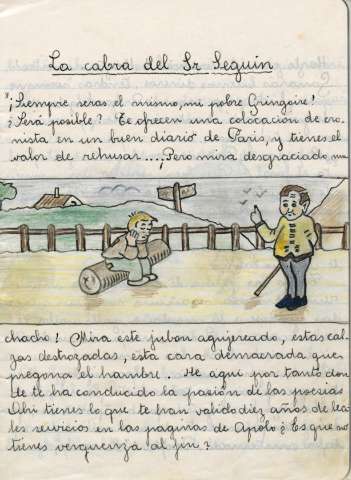 La cabra del Sr Seguin
¡Siempre seras el mismo, mi pobre Gringoire!
¿Será posible? Te ofrecen una colocacion de cro-
nista en un buen diario de Paris, y tienes el
valor de rehusar....¡Pero mira desgraciado mu-
chacho! Mira este jubon agujereado, estas cal-
zas destrozadas, esta cara demacrada que
pregona el hambre. He aqui por tanto don-
de te ha conducido la pasion de las poesias
Ahi tienes lo que te han valido diez años de lea-
les servicios en las paginas de Apolo ¿Es que no
tienes verguenza al fin?